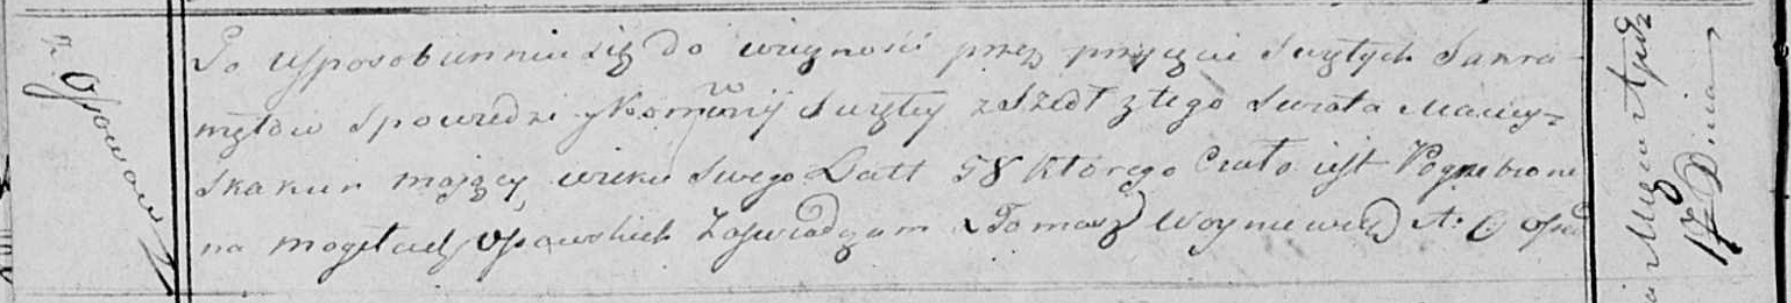 z Osowa
Po Usposobunniu się do więznośii przez przyięcie Swiętych Sakra-
męntow Spowiedzi y Kommunij Swiętey zszedł z tego Swiata Maciey
Skakun mający wieku swego Latt 58 którego Ciało iest Pogrzebione
na mogiłach Osowskich Zaswiadczam Tomasz Woyniewicz
Dnia 17